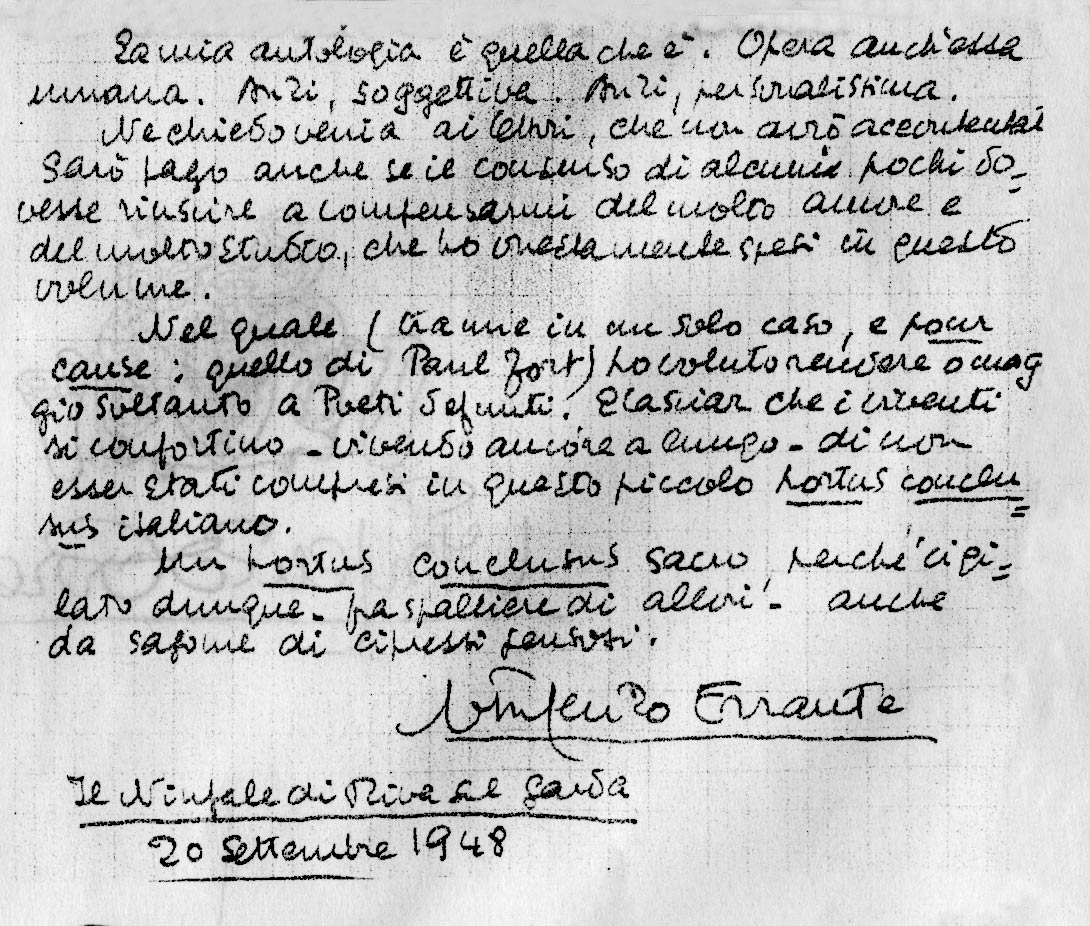 La mia antologia è quella che è. Opera anch'essa
umana. Anzi, soggettiva. Anzi, personalissima.
Ne chiedo venia ai lettori, che non avrò accontentati
Sarò pago anche se il consenso di alcuni pochi do-
vesse riuscire a compensarmi del molto amore e
del molto studio, che ho onestamente spesi in questo
volume.
Nel quale (tranne in un solo caso, e pour
cause: quello di Paul Fort) ho voluto rendere omag
gio soltanto a Poeti defunti. E lasciar che i viventi
si confortino - vivendo ancora a lungo - di non
esser stati compresi in questo piccolo hortus conclu=
sus italiano.
Un hortus conclusus sacro, perché vigi=
lato dunque - fra spalliere di allori - anche
da sagome di cipressi pensosi.
Vincenzo Errante
Il Ninfale di Riva sul Garda
20 Settembre 1948